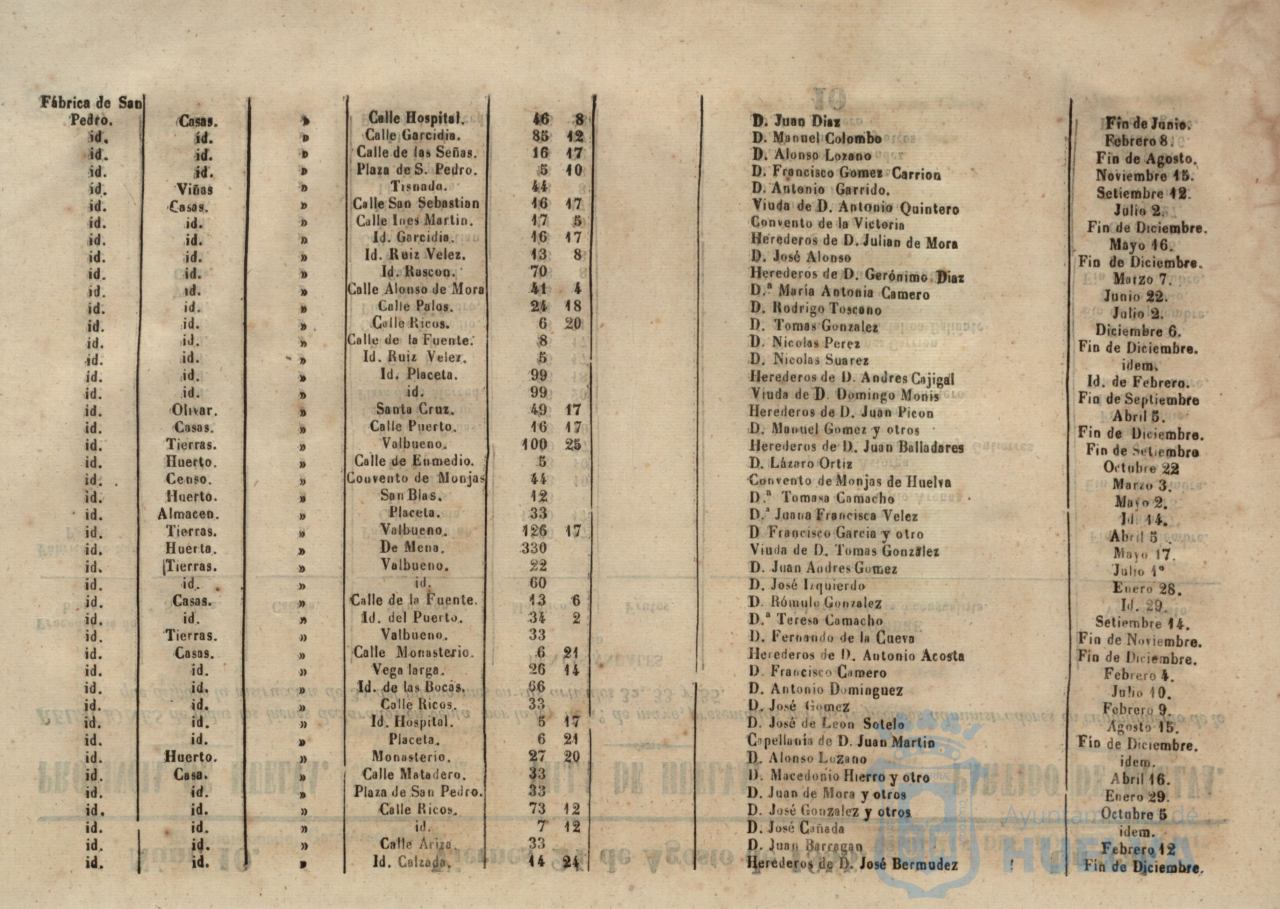 Fábrica de San
Pedro. Casas. » Calle Hospital. 46 8 D. Juan Diaz Fin de Junio.
id. id. » Calle Garcidia. 85 12 D. Manuel Colombo Febrero 8.
id. id. » Calle de las Señas. 16 17 D. Alonso Lozano Fin de Agosto.
id. id. » Plaza de S. Pedro. 5 10 D. Francisco Gomez Carrion Noviembre 15.
id. Viñas » Tisnada. 44 D. Antonio Garrido. Setiembre 12.
id. Casas. » Calle San Sebastian 16 17 Viuda de D. Antonio Quintero Julio 2.
id. id. » Calle Ines Martin. 17 5 Convento de la Victoria Fin de Diciembre.
id. id. » Id. Garcidia. 16 17 Herederos de D. Julian de Mora Mayo 16.
id. id. » Id. Ruiz Velez. 13 8 D. José Alonso Fin de Diciembre.
id. id. » Id. Rascon. 70 Herederos de D. Gerónimo Diaz Marzo 7.
id. id. » Calle Alonso de Mora 41 4 D.ª María Antonia Camero Junio 22.
id. id. » Calle Palos. 24 18 D. Rodrigo Toscano Julio 2.
id. id. » Calle Ricos. 6 20 D. Tomas Gonzalez Diciembre 6.
id. id. » Calle de la Fuente. 8 D. Nicolas Perez Fin de Diciembre.
id. id. » Id. Ruiz Velez. 5 D. Nicolas Suarez idem.
id. id. » Id. Placeta. 99 Herederos de D. Andres Cajigal Id. de Febrero.
id. id. » id. 99 Viuda de D. Domingo Monis Fin de Septiembre
id. Olivar. » Santa Cruz. 49 17 Herederos de D. Juan Picon Abril 5.
id. Casas. » Calle Puerto. 16 17 D. Manuel Gomez y otros Fin de Diciembre.
id. Tierras. » Valbueno. 100 25 Herederos de D. Juan Balladares Fin de Setiembre
id. Huerto. » Calle de Enmedio. 5 D. Lázaro Ortiz Octubre 22
id. Censo. » Convento de Monjas 44 Convento de Monjas de Huelva Marzo 3.
id. Huerto. » San Blas. 12 D.ª Tomasa Camacho Mayo 2.
id. Almacen. » Placeta. 33 D.ª Juana Francisca Velez Id. 14.
id. Tierras. » Valbueno. 126 17 D Francisco Garcia y otro Abril 5
id. Huerta. » De Mena. 330 Viuda de D. Tomas González Mayo 17.
id. Tierras. » Valbueno. 22 D. Juan Andres Gomez Julio 1º
id. id. » id. 60 D. José Izquierdo Enero 28.
id. Casas. » Calle de la Fuente. 13 6 D. Rómulo Gonzalez Id. 29.
id. id. » Id. del Puerto. 34 2 D.ª Teresa Camacho Setiembre 14.
id. Tierras. » Valbueno. 33 D. Fernando de la Cueva Fin de Noviembre.
id. Casas. » Calle Monasterio. 6 21 Herederos de D. Antonio Acosta Fin de Diciembre.
id. id. » Vega larga. 26 14 D. Francisco Camero Febrero 4.
id. id. » Id. de las Bocas. 66 D. Antonio Dominguez Julio 10.
id. id. » Calle Ricos. 33 D. José Gomez Febrero 9.
id. id. » Id. Hospital. 5 17 D. José de Leon Sotelo Agosto 15.
id. id. » Placeta. 6 21 Capellania de D. Juan Martin Fin de Diciembre.
id. Huerto. » Monasterio. 27 20 D. Alonso Lozano idem.
id. Casa. » Calle Matadero. 33 D. Macedonio Hierro y otro Abril 16.
id. id. » Plaza de San Pedro. 33 D. Juan de Mora y otros Enero 29.
id. id. » Calle Ricos. 73 12 D. José Gonzalez y otros Octubre 5
id. id. » id. 7 12 D. José Cañada idem.
id. id. » Calle Ariza. 33 D. Juan Barragan Febrero 12
id. id. » Id. Calzada. 14 24 Herederos de D. José Bermudez Fin de Diciembre.
Ayuntamiento de
HUELVA